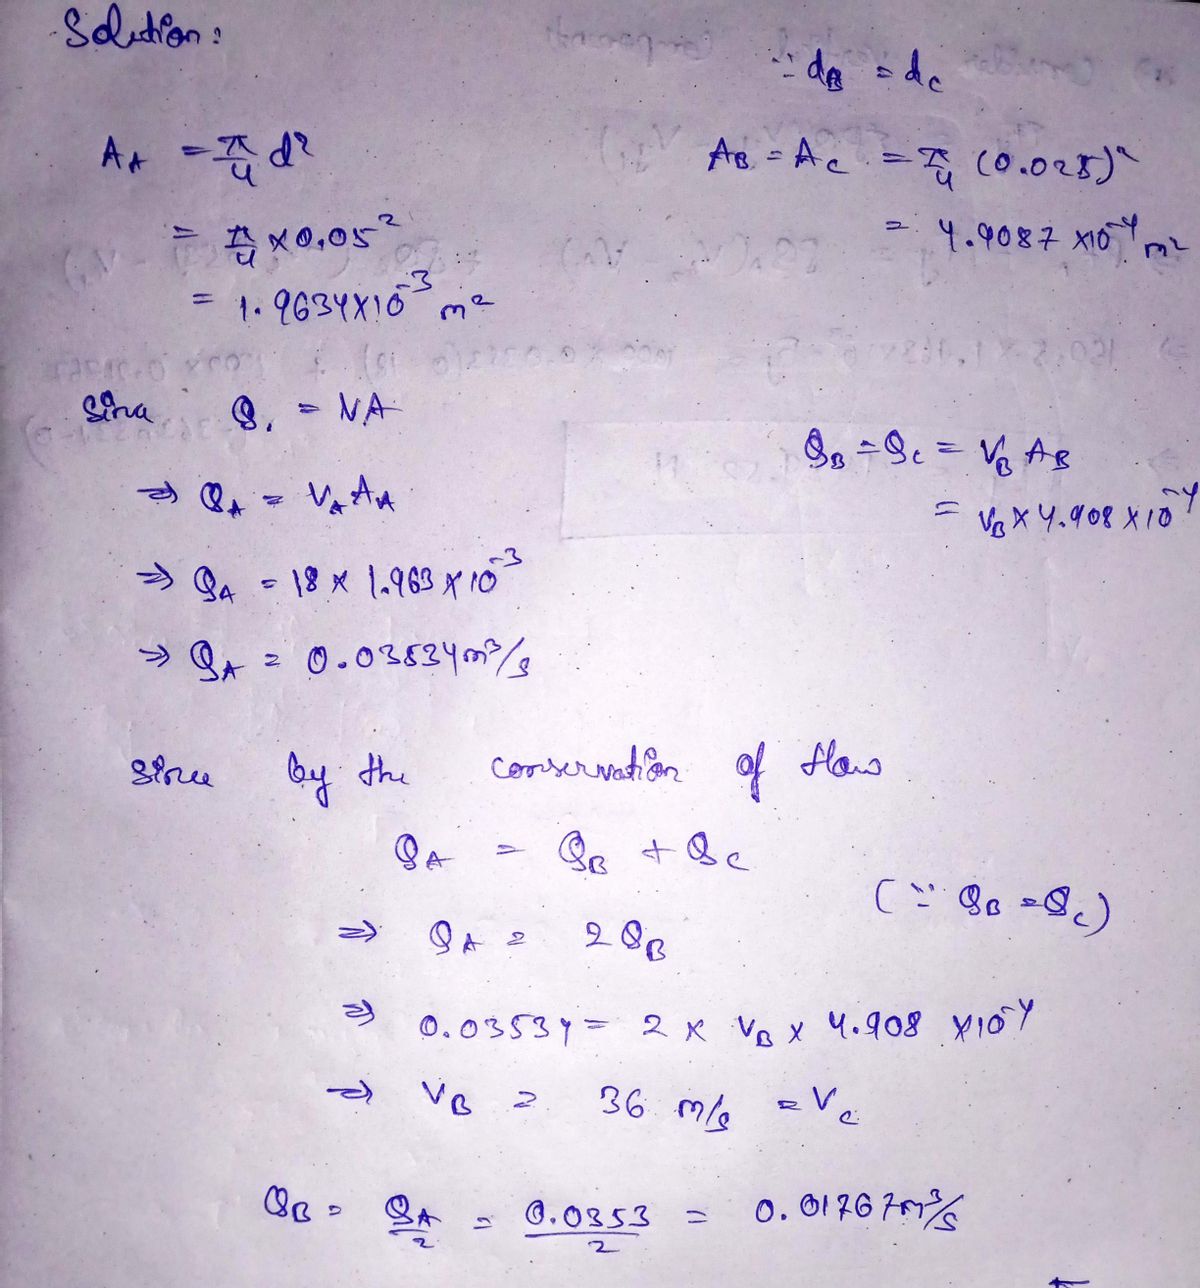 Solution:
∵ dB = dc
AA = π/4 d²
= π/4 × 0.05²
= 1.9634×10⁻³ m²
AB = Ac = π/4 (0.025)²
= 4.9087 ×10⁻⁴ m²
Q, = VA
⇒ QA = VA AA
⇒ QA = 18 × 1.963 × 10⁻³
⇒ QA = 0.03534 m³/s
QB = Qc = VB AB
= VB × 4.908 × 10⁻⁴
since by the conservation of flow
QA = QB + Qc
⇒ QA = 2 QB (∵ QB = Qc)
⇒ 0.03534 = 2 × VB × 4.908 ×10⁻⁴
⇒ VB = 36 m/s = Vc
QB = QA/2 = 0.0353/2 = 0.01767 m³/s